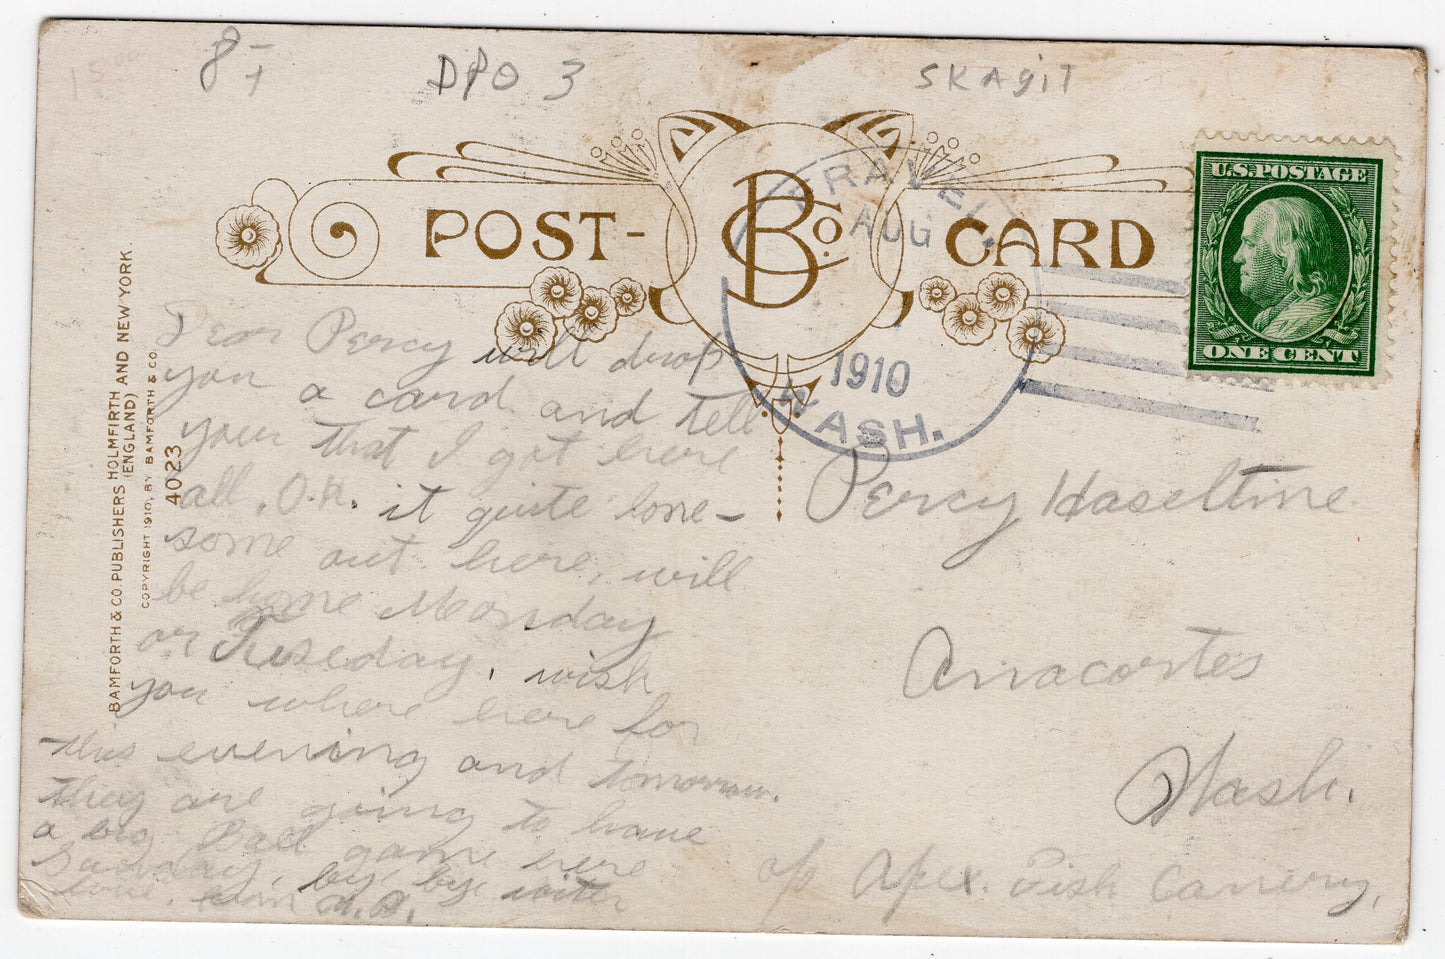 15.00
8-
DPO 3
SKAgiT
POST-
B Co.
CARD
AUG
1910
WASH.
U.S. POSTAGE
ONE CENT
BAMFORTH & CO. PUBLISHERS HOLMFIRTH (ENGLAND) AND NEW YORK.
COPYRIGHT 1910, BY BAMFORTH & CO.
4023
Dear Percy will drop
you a card and tell
your that I got here
all, O.K. it quite lone-
some out here, will
be home Monday
or Tuseday, wish
you where here for
this evening and tomorrow.
they are going to have
a big Ball game here
Sunday, bye bye with
love,
Percy Haseltine
Anacortes
Wash.
c/o Apex. Fish Canery,